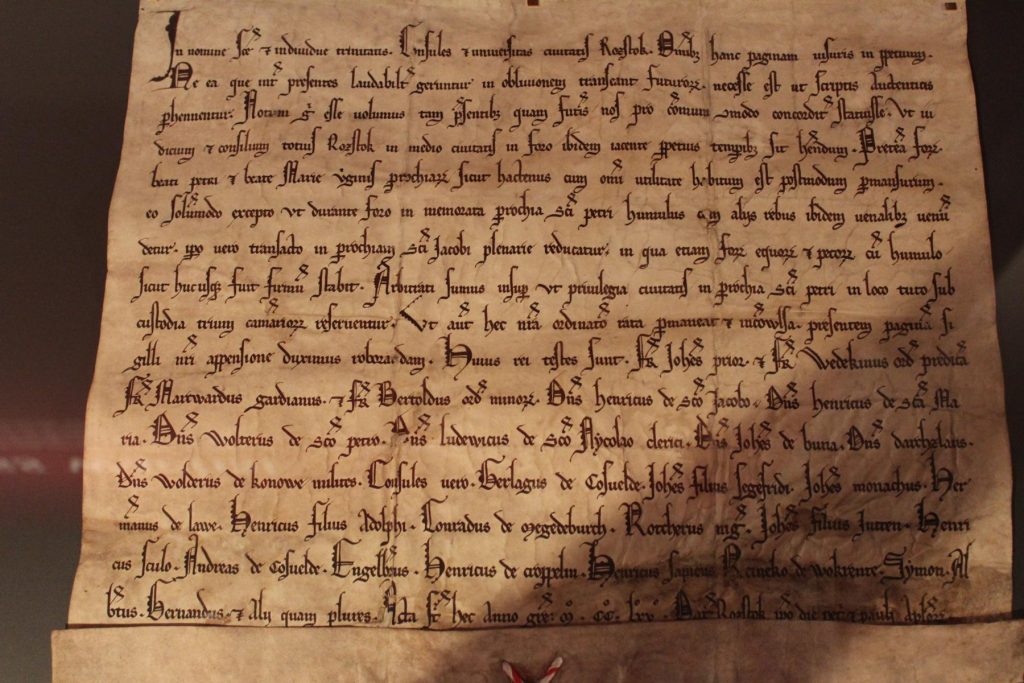 In nomine Sc̄e & individue trinitatis. Consules & universitas civitatis Rozstok. Omībz hanc paginam visuris in ꝑpetuum.
Ne ea que int̄ presentes laudabilit̄ geruntur in oblivionem transeant futurorꝝ. necesse est ut scriptis autenticis
ꝑhennentur. Notum ḡ esse volumus tam p̄sentibz quam futˢis nos pro cōmuni om̄odo concordit̄ statuisse. Ut iu
dicium & consilium totius Rozstok in medio civitatis in foro ibidem iacente ꝑpetuis tempībz sit hn̄dum. Pretea forꝝ
beati petri & beate Marie v̄ginis ꝑrochiarꝝ sicut hactenus cum om̄i utilitate habitum est postmodum ꝑmansurum.
eo solūmodo excepto ut durante foro in memorata ꝑrochia Sc̄i petri humulus cum alijs rebus ibidem venalibz venū
detur. ip̄o vero transacto in ꝑrochiam Sc̄i Jacobi plenarie reducatur. in qua etiam forꝝ equorꝝ & pecorꝝ cū humulo
sicut hucusqꝫ fuit firmū stabit. Arbitrati sumus insuꝑ ut privilegia civitatis in ꝑrochia Sc̄i petri in loco tuto sub
custodia trium camerariorꝝ reserventur. Ut aūt hec nr̄a ordinatō rata ꝑmaneat & incōvulsa. presentem paginā si
gilli nr̄i appensione duximus roborandam. Huius rei testes sunt. Fr̄ Joh̄es prior. & Fr̄ Wedekinus ord̄ predicā
Fr̄ Marwardus gardianus. & Fr̄ Bertoldus ord̄ minorꝝ. Dn̄s henricus de sc̄o Jacobo. Dn̄s henricus de Sc̄a Ma
ria. Dn̄s Wolterus de sc̄o petro. Dn̄s ludewicus de Sc̄o Nycolao clerici. Dn̄s Joh̄es de buria. Dn̄s darchzlaus.
Dn̄s Wolderus de konowe milites. Consules vero. Gerlagus de Cosuelde. Joh̄es filius segefridi. Joh̄es monachus. Her
mānus de lawe. Henricus filius Adolphi. Conradus de megedeburch. Rotcherus mgr̄. Joh̄es filius Jutten. Henri
cus sculo. Andreas de Cosuelde. Engelb̄tus. Henricus de cröppelin. Henricus sapiens Reineko de Wokrente. Symon. Al
b̄tus. Bernardus. & alij quam plures. Acta sūt hec Anno gr̄e. mͦ. ccͦ. lxxͦ. Dat̄ Rozstok in die petri & pauli Apl̄orꝝ.